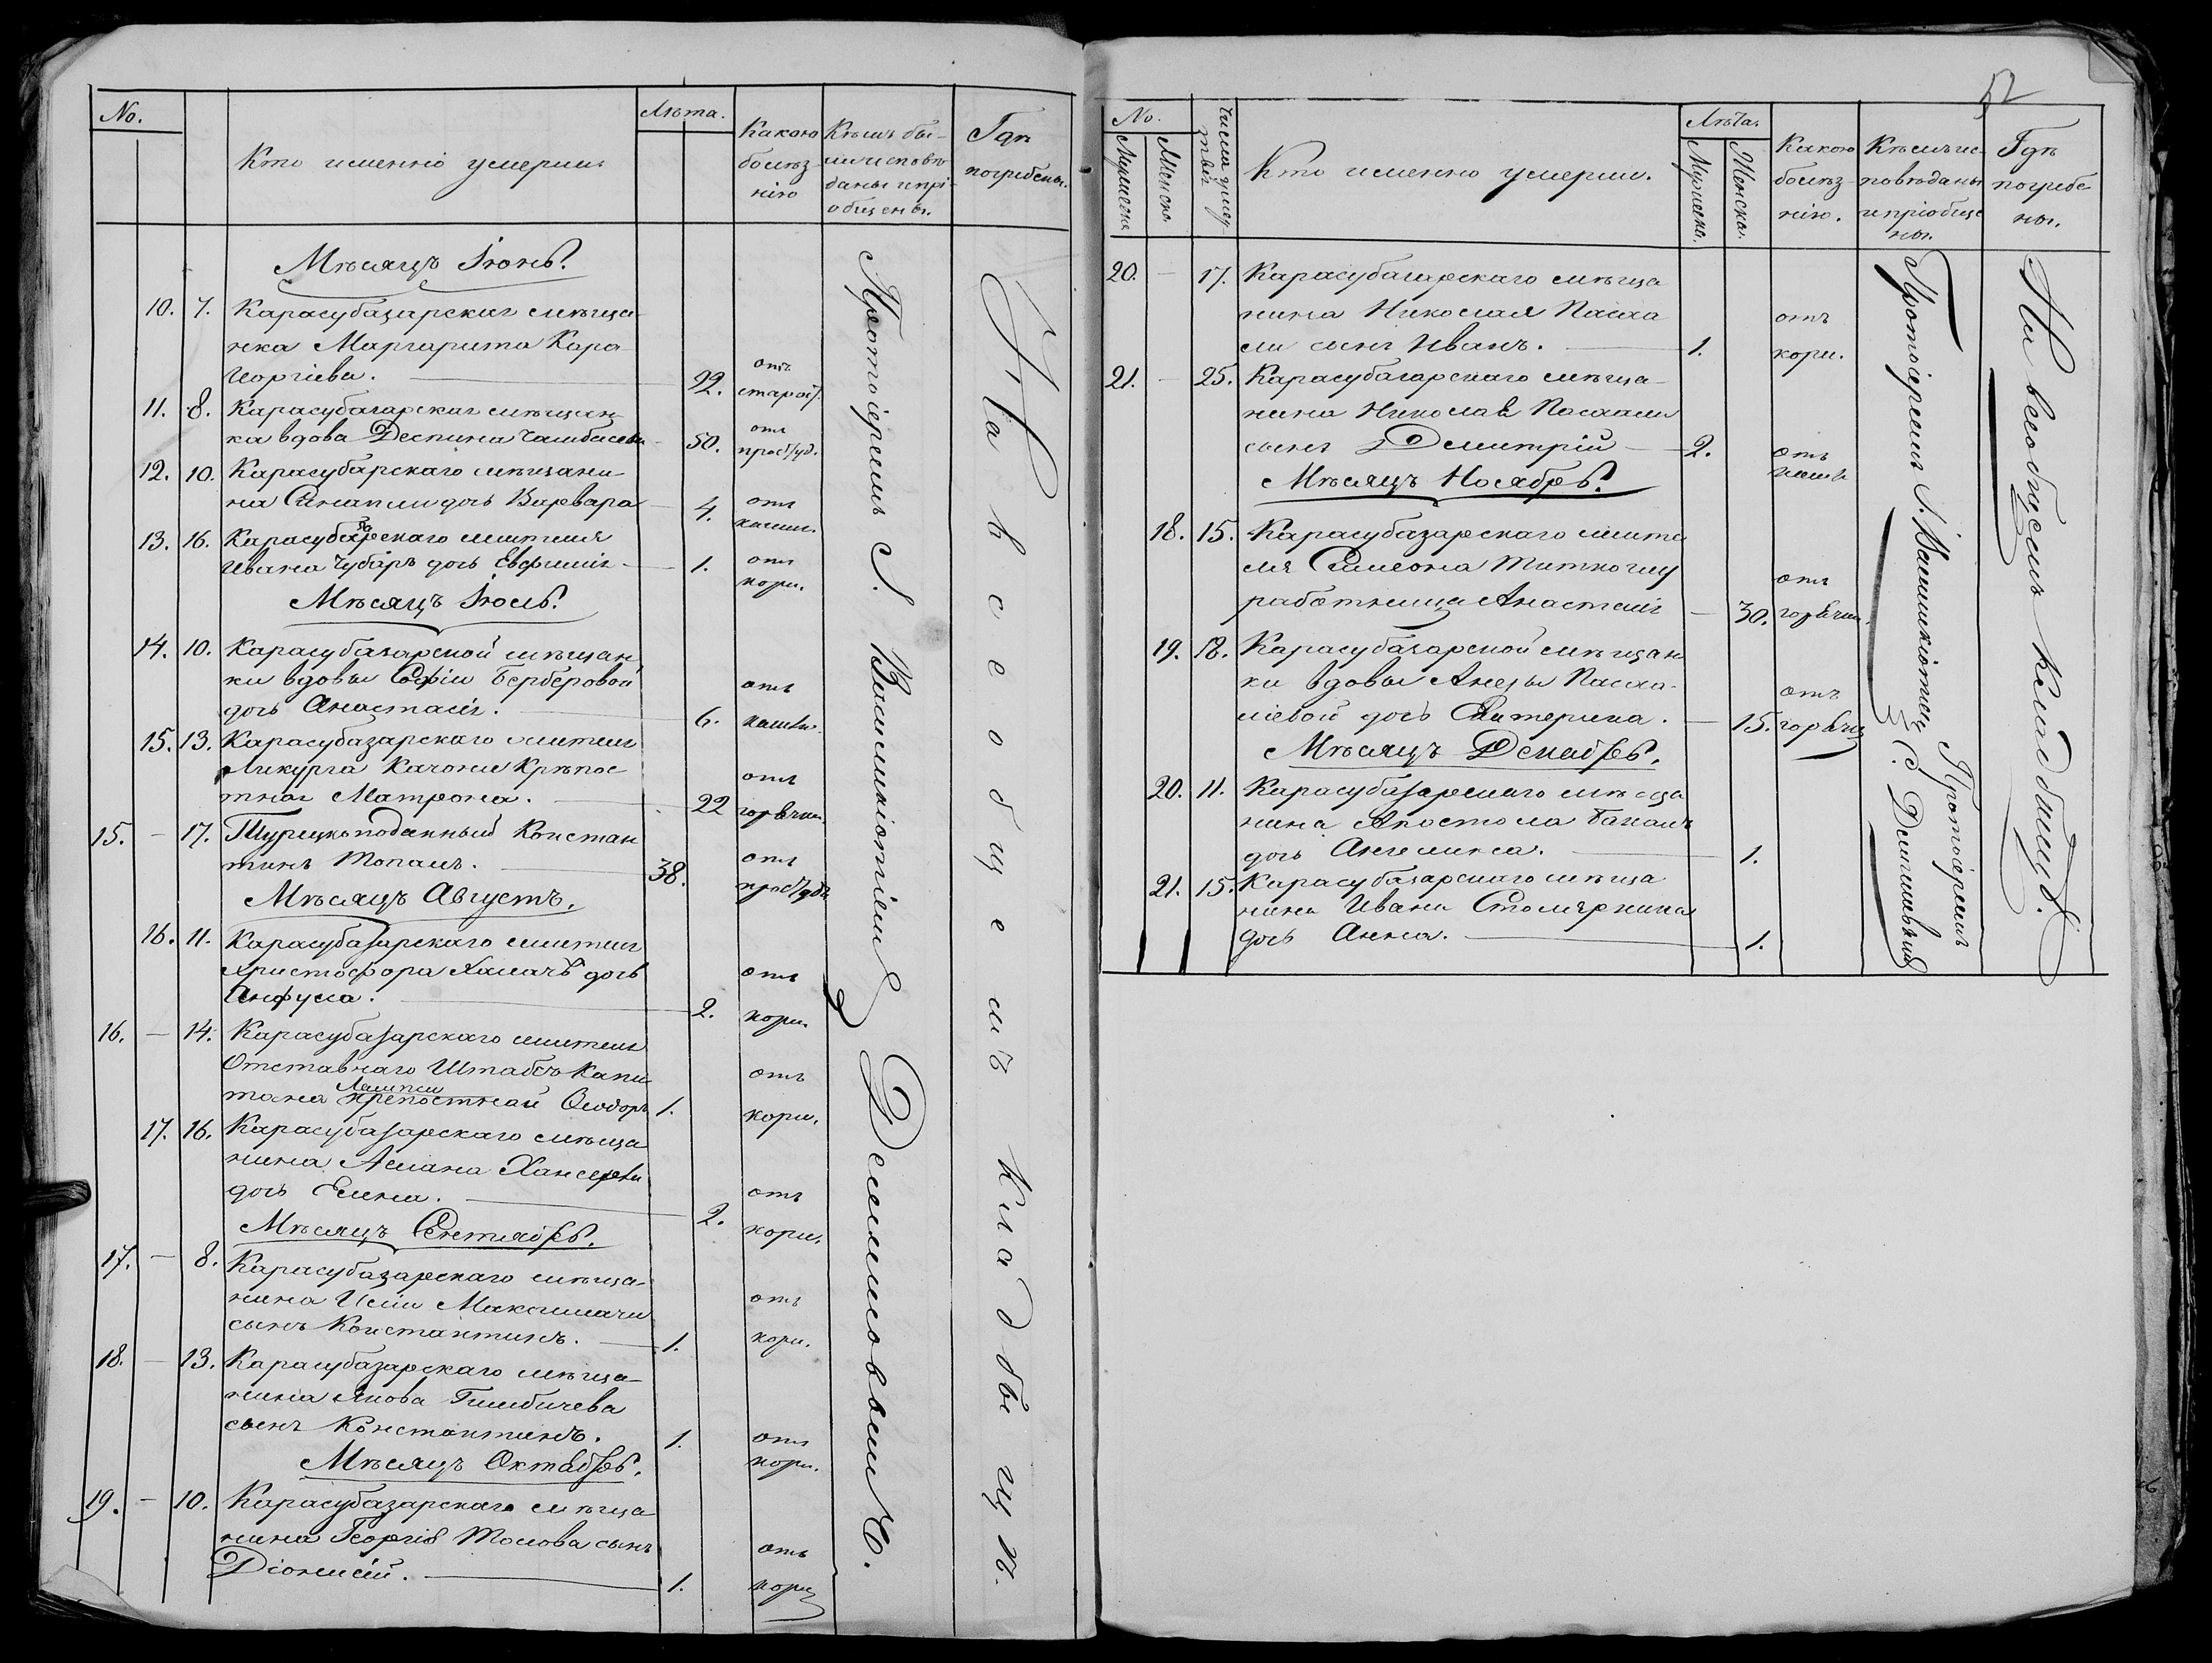 No.
Лѣта.
Кто именно умерши
Какою болѣз-
нію
Кѣмъ бы-
ли исповѣ-
даны и прі-
общены.
Гдѣ
погребены.
Мѣсяцъ Іюнь.
10. 7. Карасубазарская мѣща-
нка Маргарита Кара-
Иоргіева. 92. отъ старос.
11. 8. Карасубазарская мѣщан-
ка вдова Деспина 50. отъ прост/уд.
12. 10. Карасубарскаго мѣщани-
на дочь Варвара 4. отъ кашля.
13. 16. Карасубазарскаго жителя
Ивана Чубаръ дочь Евфимія 1. отъ кори.
Мѣсяцъ Іюль.
14. 10. Карасубазарской мѣщан
ки вдовы Софіи Берберовой
дочь Анастасія. 6. отъ кашля.
15. 13. Карасубазарскаго жителя
Ликурга Качони крѣпос
тная Матрона. 22 отъ горячки.
15. – 17. Турецкоподанный Констан
тинъ Топалъ. 38. отъ прост/уды
Мѣсяцъ Августъ.
16. 11. Карасубазарскаго жителя
Христофора Халачъ дочь
Анфуса. 2. отъ кори.
16. – 14. Карасубазарскаго жителя
Отставнаго Штабсъ Капи
тана крепостнаи Ѳеодоръ 1. отъ кори.
17. 16. Карасубазарскаго мѣща
нина Аслана
дочь Елена. 2. отъ кори.
Мѣсяцъ Сентябрь.
17. – 8. Карасубазарскаго мѣща-
нина Иліи
сынъ Константинъ. 1. отъ кори.
18. – 13. Карасубазарскаго мѣща-
нина Якова
сынъ Константинъ. 1. отъ кори.
Мѣсяцъ Октябрь.
19. – 10. Карасубазарскаго мѣща
нина Георгія сынъ
Діонисій. 1. отъ кори
Протоіереемъ С.
На всеобщемъ кладбищѣ.
52
No.
Мужеска
Женска
Кто именно умерши.
Лѣта.
Мужеска.
Женска.
Какою
болѣз-
нію.
Кѣмъ ис-
повѣданы
и пріобще
ны.
Гдѣ
погребе
ны.
20. – 17. Карасубазарскаго мѣща
нина Николая Пасха
ли сынъ Иванъ. 1. отъ кори.
21. – 25. Карасубазарскаго мѣща-
нина Николая Пасхали
сынъ Димитрій 2. отъ
Мѣсяцъ Ноябрь.
18. 15. Карасубазарскаго жите
ля Симеона
работница Анастасія 30. отъ горячки.
19. 18. Карасубазарской мѣщан
ки вдовы Пасха-
ліевой дочь Екатерина. 15. отъ горячки
Мѣсяцъ Декабрь.
20. 11. Карасубазарскаго мѣща
нина Апостола
дочь Ангелина. 1.
21. 15. Карасубазарскаго мѣща
нина Ивана
дочь Анна. 1.
Протоіереемъ
Протоіереемъ
На всеобщемъ кладбищѣ.